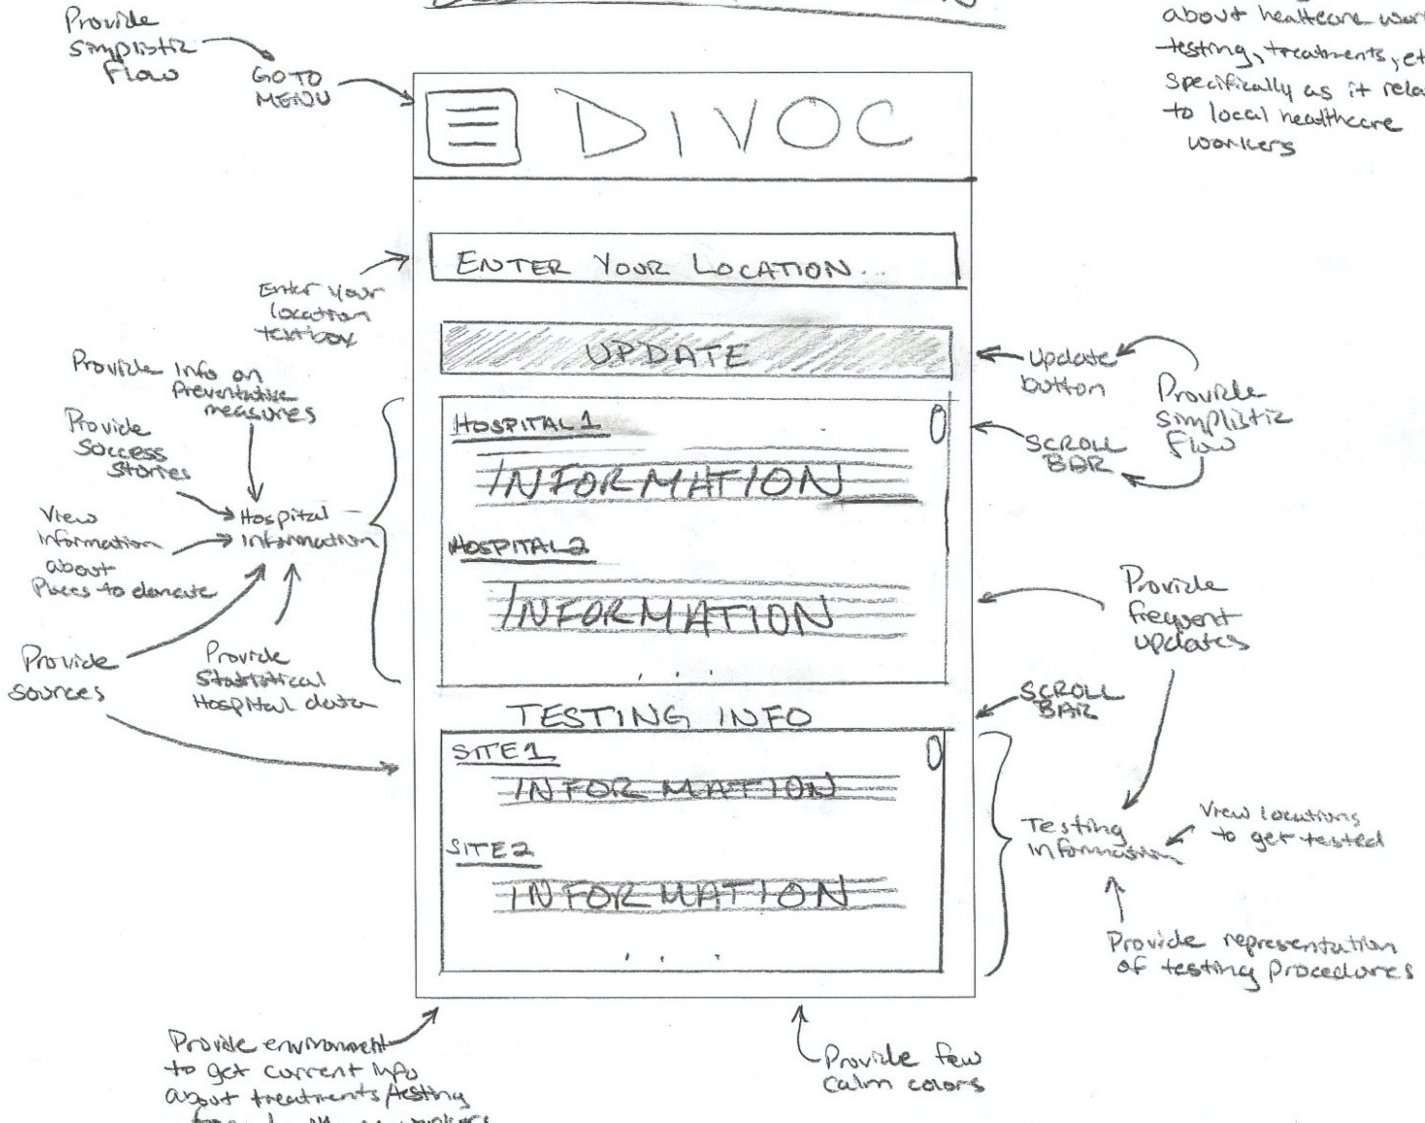 Provide
simplistic
flow
GO TO
MENU
about healthcare
testing, treatments,
specifically as it
to local healthcare
workers
DIVOC
ENTER YOUR LOCATION...
Enter your
location
textbox
UPDATE
Update
button
Provide
simplistic
flow
SCROLL
BAR
Provide Info on
Preventative
measures
Provide
Success
Stories
View
information
about
Places to donate
Hospital
information
Provide
sources
Provide
Statistical
Hospital data
HOSPITAL 1
INFORMATION
HOSPITAL 2
INFORMATION
. . .
Provide
frequent
updates
SCROLL
BAR
TESTING INFO
SITE 1
INFORMATION
SITE 2
INFORMATION
. . .
Testing
information
View locations
to get tested
Provide representation
of testing procedures
Provide environment
to get current info
about treatments/testing
Provide few
calm colors